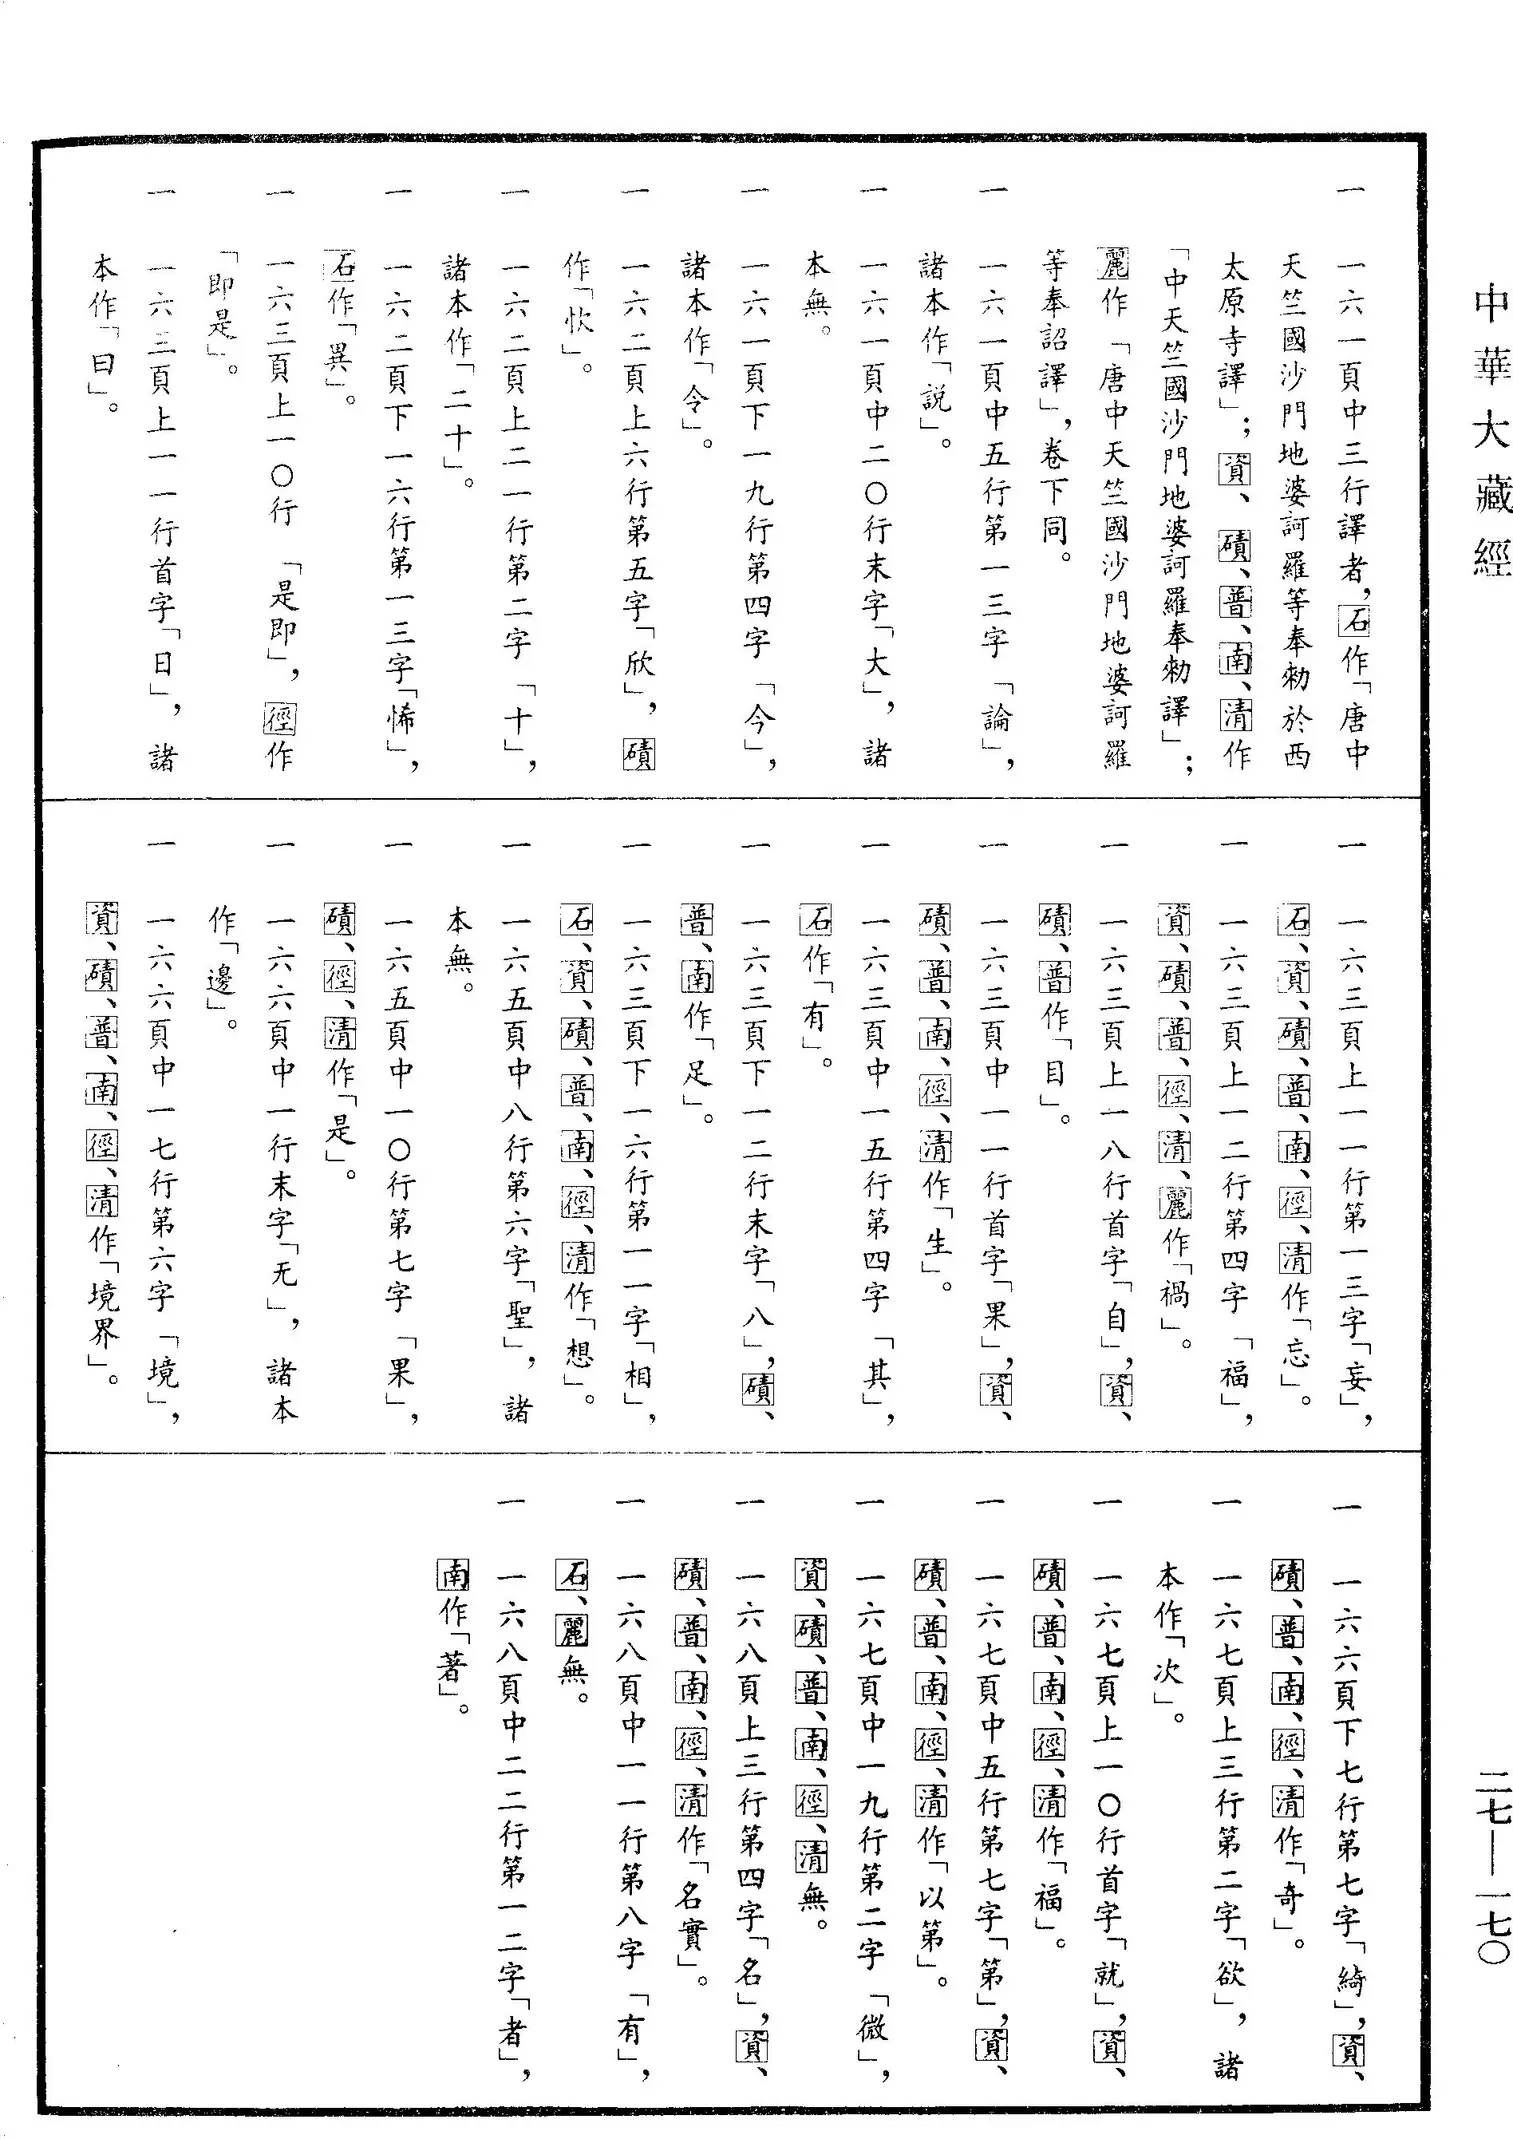 中華大藏經
一 一六一頁中三行譯者，石作「唐中
天竺國沙門地婆訶羅等奉勅於西
太原寺譯」；資、磧、普、南、清作
「中天竺國沙門地婆訶羅奉勅譯」；
麗作「唐中天竺國沙門地婆訶羅
等奉詔譯」，卷下同。
一 一六一頁中五行第一三字「論」，
諸本作「說」。
一 一六一頁中二〇行末字「大」，諸
本無。
一 一六一頁下一九行第四字「今」，
諸本作「令」。
一 一六二頁上六行第五字「欣」，磧
作「忺」。
一 一六二頁上二一行第二字「十」，
諸本作「二十」。
一 一六二頁下一六行第一三字「悕」，
石作「異」。
一 一六三頁上一〇行「是即」，徑作
「即是」。
一 一六三頁上一一行首字「日」，諸
本作「曰」。
一 一六三頁上一一行第一三字「妄」，
石、資、磧、普、南、徑、清作「忘」。
一 一六三頁上一二行第四字「福」，
資、磧、普、徑、清、麗作「禍」。
一 一六三頁上一八行首字「自」，資、
磧、普作「目」。
一 一六三頁中一一行首字「果」，資、
磧、普、南、徑、清作「生」。
一 一六三頁中一五行第四字「其」，
石作「有」。
一 一六三頁下一二行末字「八」，磧、
普、南作「足」。
一 一六三頁下一六行第一一字「相」，
石、資、磧、普、南、徑、清作「想」。
一 一六五頁中八行第六字「聖」，諸
本無。
一 一六五頁中一〇行第七字「果」，
磧、徑、清作「是」。
一 一六六頁中一行末字「无」，諸本
作「邊」。
一 一六六頁中一七行第六字「境」，
資、磧、普、南、徑、清作「境界」。
一 一六六頁下七行第七字「綺」，資、
磧、普、南、徑、清作「奇」。
一 一六七頁上三行第二字「欲」，諸
本作「次」。
一 一六七頁上一〇行首字「就」，資、
磧、普、南、徑、清作「福」。
一 一六七頁中五行第七字「第」，資、
磧、普、南、徑、清作「以第」。
一 一六七頁中一九行第二字「微」，
資、磧、普、南、徑、清無。
一 一六八頁上三行第四字「名」，資、
磧、普、南、徑、清作「名實」。
一 一六八頁中一一行第八字「有」，
石、麗無。
一 一六八頁中二二行第一二字「者」，
南作「著」。
二七—一七〇